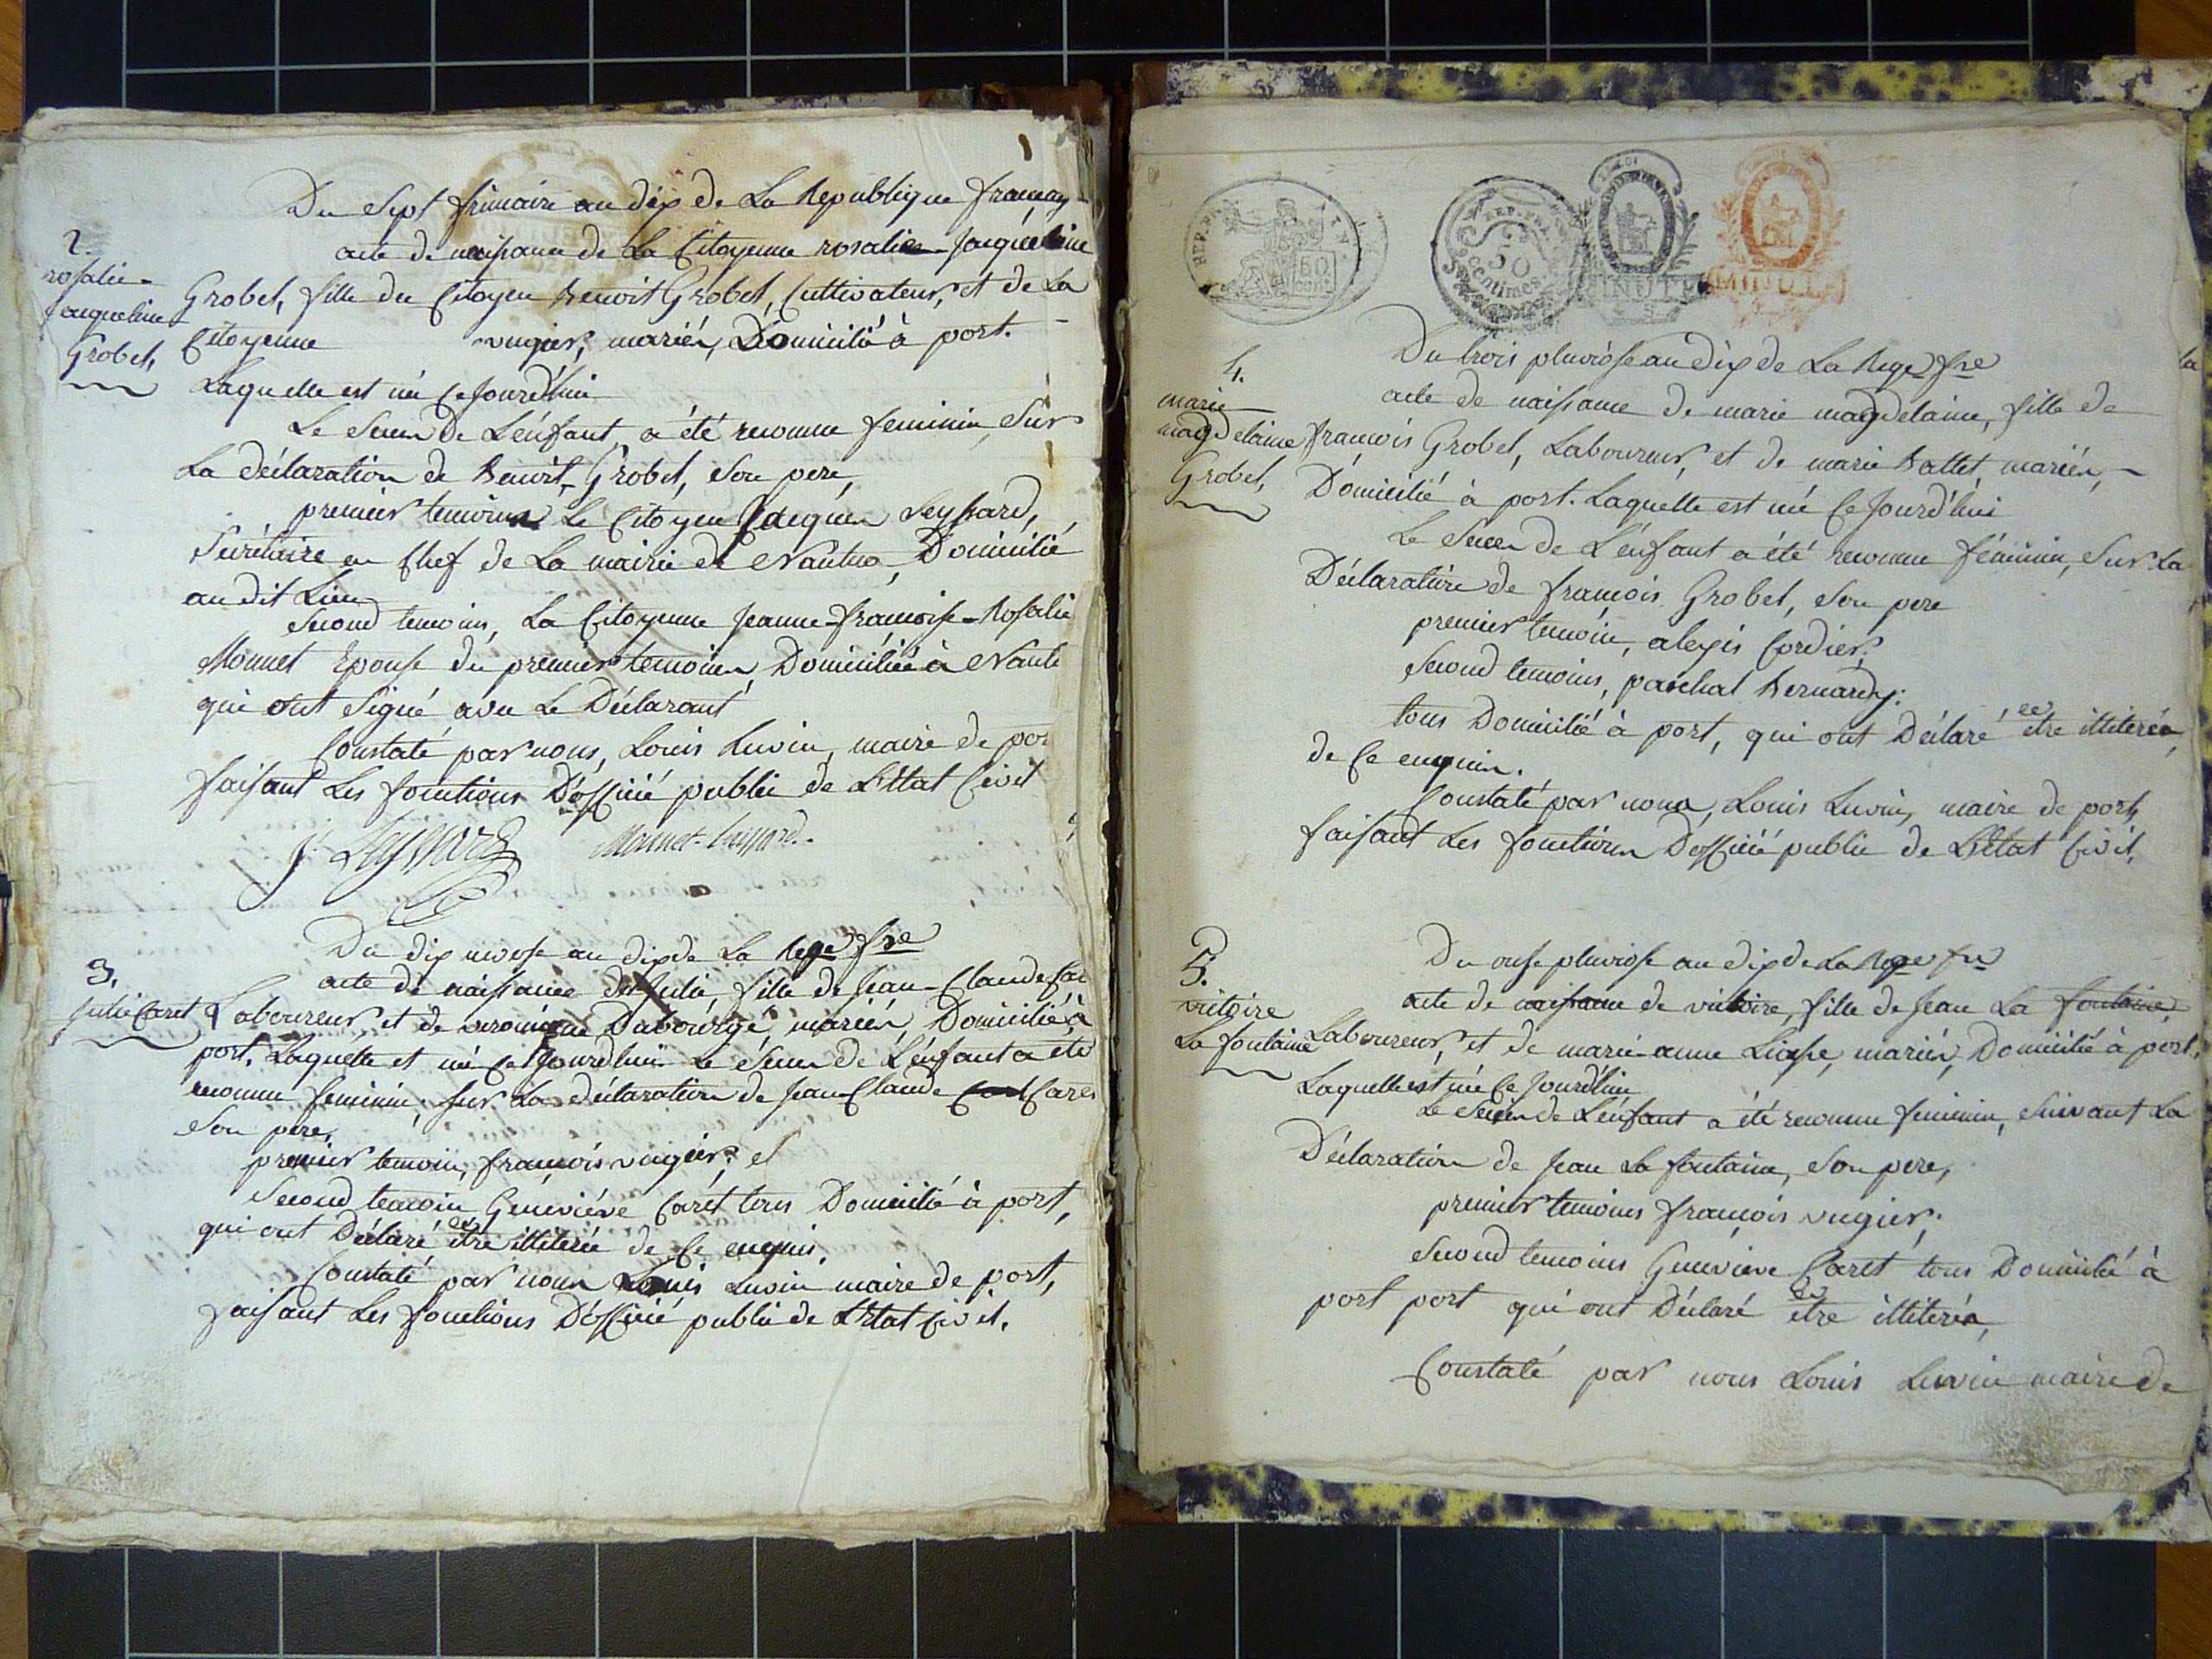 Du sept frimaire an dix de La Republique françay
acte de naissance de La Citoyenne rosalie Jacqueline
2.
rosalie-
Jacqueline
Grobet,
Grobet, fille du Citoyen Benoit Grobet, Cultivateur, et de La
Citoyenne vugier, mariés, Domicilié à port.
Laquelle est né ce Jourd'hui
Le Sexe de L'enfant a été reconnu feminin, Sur
La déclaration de Benoit Grobet, Son pere,
premier temoins Le Citoyen Jacques Leyssard,
Secrétaire en Chef de La mairie de Nantua, Domicilié
au dit Lieu
Second temoins, La Citoyenne Jeanne-françoise-Rosalie
Monnet Epouse du premier temoins, Domiciliée à Nantu
qui ont Signé avec Le Déclarant
Constaté par nous, Louis Luvin, maire de por
faisant Les fonctions D'officié public de L'Etat Civil
J. Leyssard Monnet-Leyssard.
Du dix nivose an dix de La Rege fse
3.
Julie Caret
acte de naissance de Julie, fille de Jean-Claude Car
Laboureur, et de veronique Dubourge, mariés, Domicilié à
port, Laquelle est né ce Jourd'hui Le Sexe de L'enfant a été
reconnu feminin, sur La déclaration de Jean Claude Caret
Son pere,
premier temoin, françois vugier; et
Second temoin, Geneviéve Caret tous Domicilié à port,
qui ont Déclaré être illiterés de Ce enquis.
Constaté par nous Louis Luvin maire de port,
faisant Les fonctions D'officié public de L'Etat Civil.
REP. FRA
50 cent
REP. FRA
50
centimes
MINUTE
MINUTE
Du trois pluviose an dix de La Rege fse
4.
marie
magdelaine
Grobet,
acte de naissance de marie magdelaine, fille de
françois Grobet, Laboureur, et de marie Ballet, mariés,
Domicilié à port. Laquelle est né Ce Jourd'hui
Le Sexe de L'enfant a été reconnu féminin, Sur La
Déclaration de françois Grobet, Son pere
premier temoin, alexis Cordier;
Second temoins, paschal Bernardy:
tous Domicilié à port, qui ont Déclaré être illiterés,
de Ce enquis.
Constaté par nous, Louis Luvin, maire de port,
faisant Les fonctions D'officié public de L'Etat Civil.
Du onse pluviose an dix de La Rege fse
5.
victoire
La fontaine
acte de naissance de victoire, fille de Jean La fontaine,
Laboureur, et de marie-anne Liasse, mariés, Domicilié à port,
Laquelle est née Ce Jourd'hui
Le Sexe de L'enfant a été reconnu feminin, Suivant La
Déclaration de Jean La fontaine, Son pere,
premier temoins françois vugier;
Second temoins Genevieve Caret tous Domicilié à
port port qui ont Déclaré être illiterés,
Constaté par nous Louis Luvin maire de